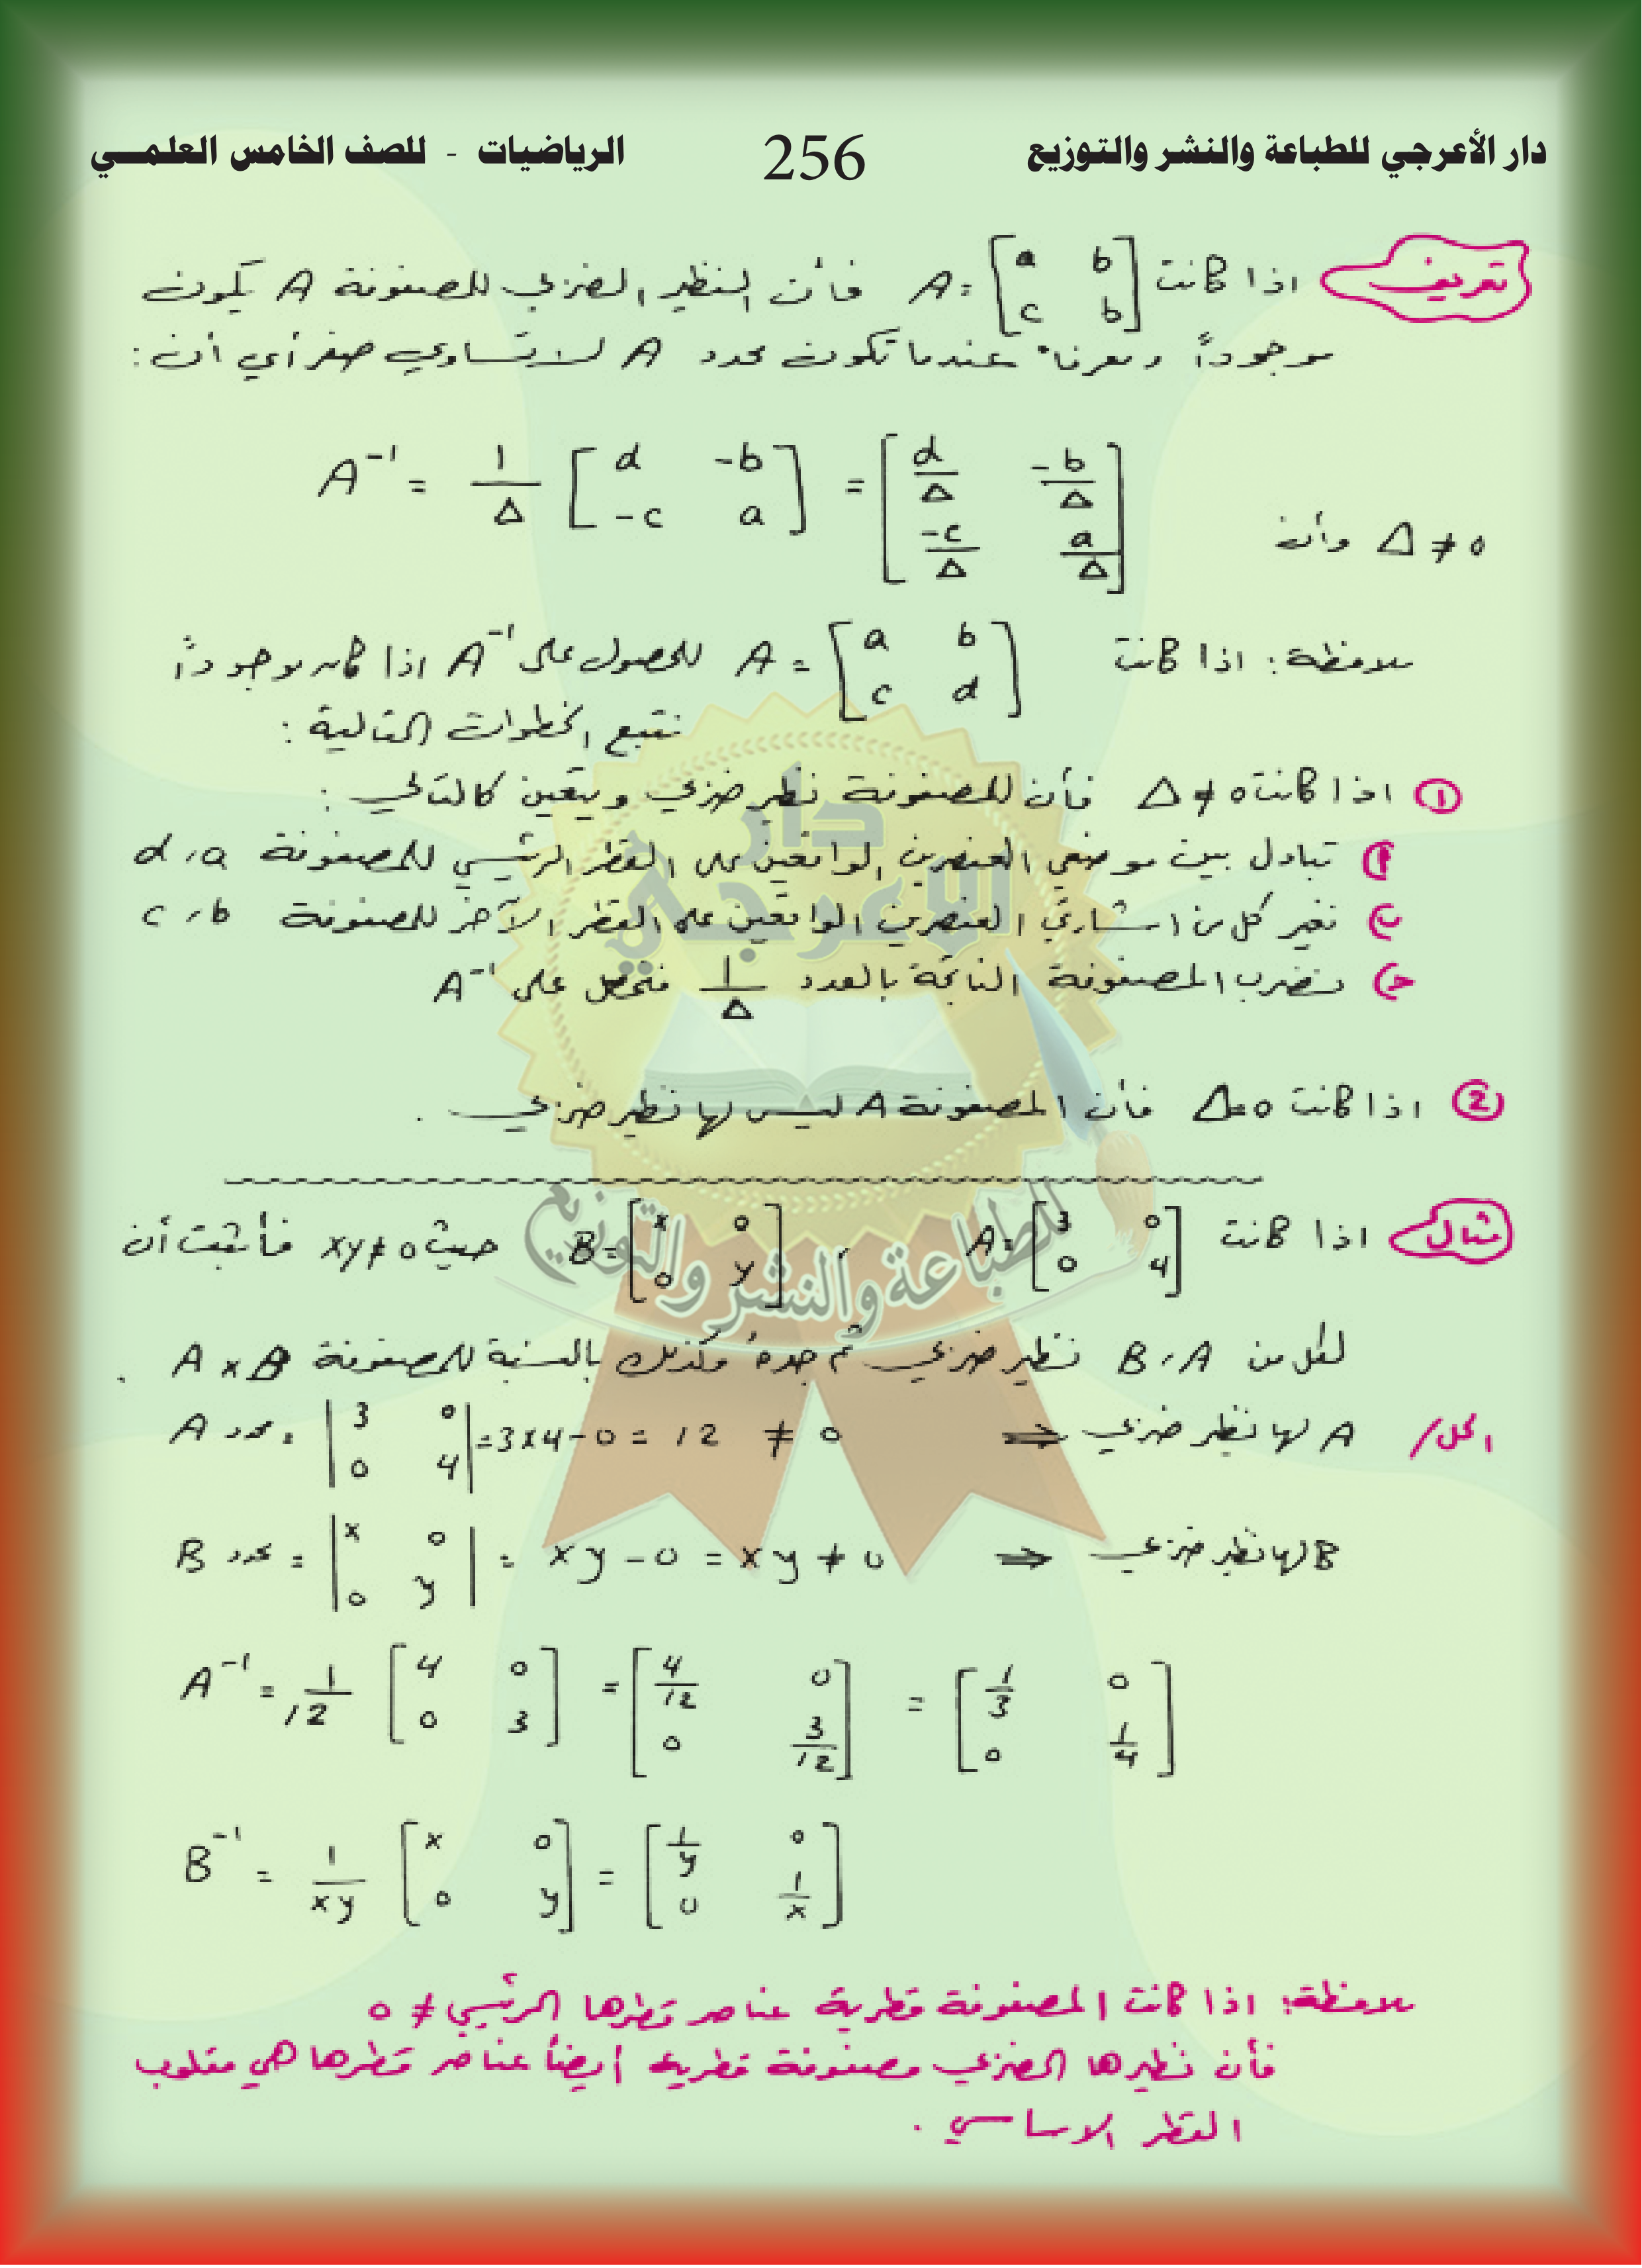 دار الأعرجي للطباعة والنشر والتوزيع 256 الرياضيات - للصف الخامس العلمي
تعريف اذا كانت A = [a b ; c b] فأن النظير الضربي للمصفوفة A يكون
موجوداً ومعرفاً عندما تكون محدد A لا تساوي صفر أي أن :
A⁻¹ = 1/Δ [d -b ; -c a] = [d/Δ -b/Δ ; -c/Δ a/Δ]
وأن Δ ≠ 0
ملاحظة : اذا كانت A = [a b ; c d] للحصول على A⁻¹ اذا كان موجوداً
نتبع الخطوات التالية :
① اذا كانت Δ ≠ 0 فأن للمصفوفة نظير ضربي ويتعين كالتالي :
أ) تبادل بين موضعي العنصرين الواقعين على القطر الرئيسي للمصفوفة a ، d
ب) نغير كل من اشارتي العنصرين الواقعين على القطر الآخر للمصفوفة b ، c
ج) نضرب المصفوفة الناتجة بالعدد 1/Δ فنحصل على A⁻¹
② اذا كانت Δ=0 فأن المصفوفة A ليس لها نظير ضربي .
مثال اذا كانت A = [3 0 ; 0 4] , B = [x 0 ; 0 y] حيث xy ≠ 0 فأثبت أن
لكل من A ، B نظير ضربي ثم جده وكذلك بالنسبة للمصفوفة A x B .
الحل/ محدد A = |3 0 ; 0 4| = 3x4 - 0 = 12 ≠ 0 ⇒ A لها نظير ضربي
محدد B = |x 0 ; 0 y| = xy - 0 = xy ≠ 0 ⇒ B لها نظير ضربي
A⁻¹ = 1/12 [4 0 ; 0 3] = [4/12 0 ; 0 3/12] = [1/3 0 ; 0 1/4]
B⁻¹ = 1/xy [x 0 ; 0 y] = [1/y 0 ; 0 1/x]
ملاحظة : اذا كانت المصفوفة قطرية عناصر قطرها الرئيسي ≠ 0
فأن نظيرها الضربي مصفوفة قطرية أيضاً عناصر قطرها هي مقلوب
القطر الاساسي .
دار
الاعرجي
للطباعة والنشر والتوزيع